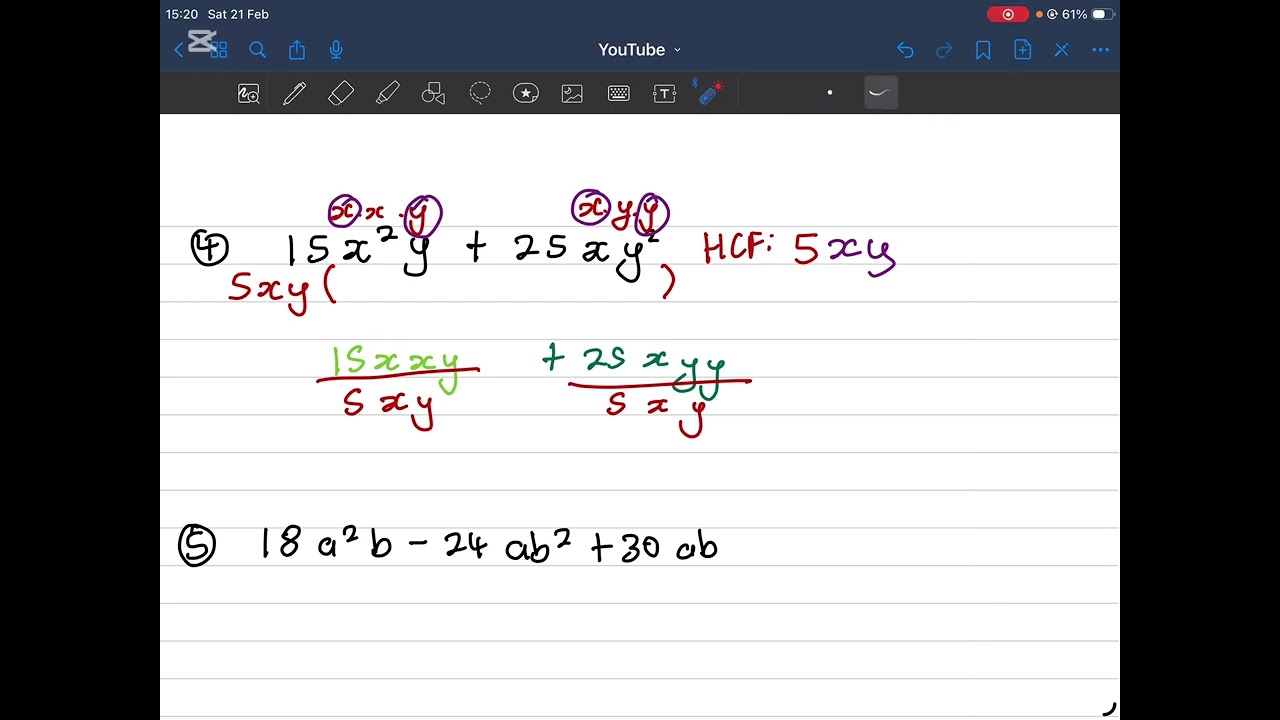 15:20 Sat 21 Feb 61%
YouTube
x·x·y x·y·y
④ 15x²y + 25xy² HCF: 5xy
5xy( )
15xxy + 25xyy
5xy 5xy
⑤ 18a²b - 24ab² + 30ab